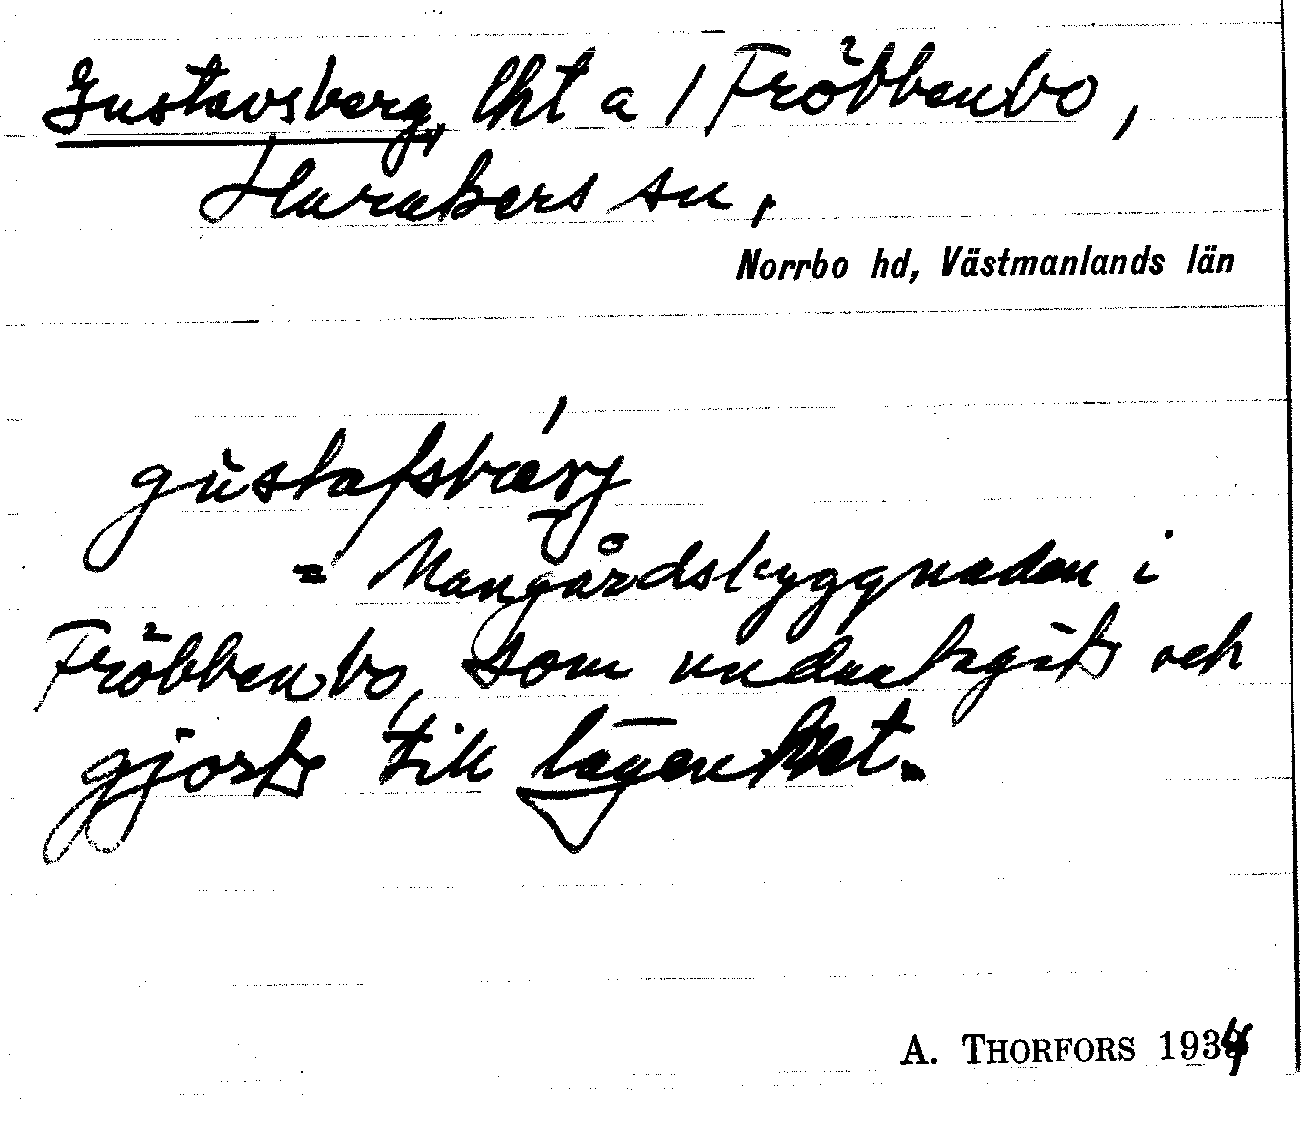 Gustavsberg, lht a / Fröbbenbo,
Harakers sn,
Norrbo hd, Västmanlands län
gùstafsbærj
= Mangårdsbyggnaden i
Fröbbenbo, som undantagits och
gjorts till lägenhet.
A. THORFORS 1934